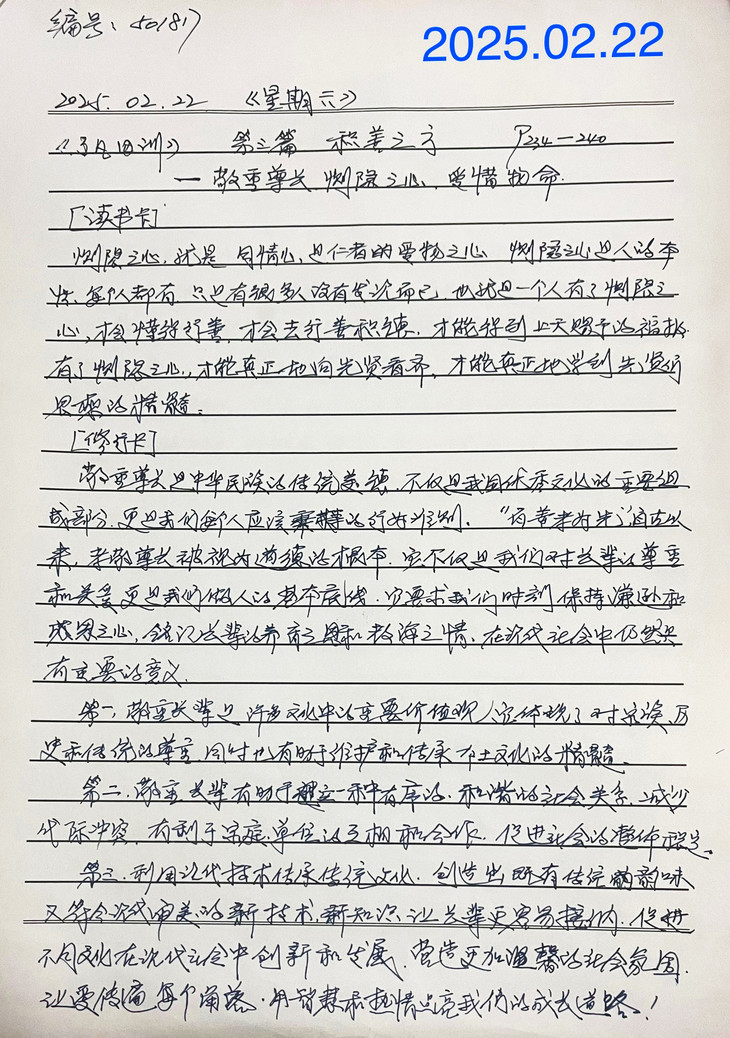 编号：50187
2025.02.22
2025.02.22 《星期六》
《了凡四训》 第三篇 积善之方 P234—240
— 敬重尊长 恻隐之心、爱惜物命
[读书卡]
恻隐之心，就是同情心，是仁者的爱物之心 恻隐之心是人的本
性，每个人都有 只是有很多人没有发现而已，也就是一个人有了恻隐之
心，才会懂得行善，才会去行善积德，才能得到上天赐予的福报
有了恻隐之心，才能真正地向先贤看齐，才能真正地学到先贤们
思想的精髓。
[修行卡]
敬重尊长是中华民族的传统美德，不仅是我国优秀文化的重要组
成部分，更是我们每个人应该秉持的行为准则。“百善孝为先”自古以
来，孝敬尊长被视为道德的根本，它不仅是我们对长辈的尊重
和关爱更是我们做人的基本底线，它要求我们时刻保持谦逊和
感恩之心，铭记长辈的养育之恩和教诲之情，在现代社会中仍然具
有重要的意义。
第一，敬重长辈是许多文化中的重要价值观，它体现了对家族、历
史和传统的尊重，同时也有助于维护和传承本土文化的精髓。
第二，敬重长辈有助于建立一种有序的、和谐的社会关系，减少
代际冲突，有利于家庭、单位的互相和合作，促进社会的整体稳定。
第三，利用现代技术传承传统文化，创造出既有传统的韵味
又符合现代审美的新技术，新知识让长辈更容易接纳，促进
不同文化在现代社会中创新和发展，营造更加温馨的社会氛围，
让爱传遍每个角落，用智慧和热情点亮我们的成长道路！